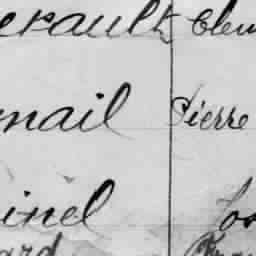 erault Clem
mail Pierre
inel Jos
ard